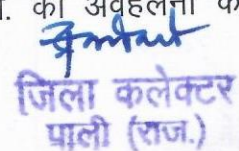 . की अवहेलना क
जिला कलेक्टर
पाली (राज.)